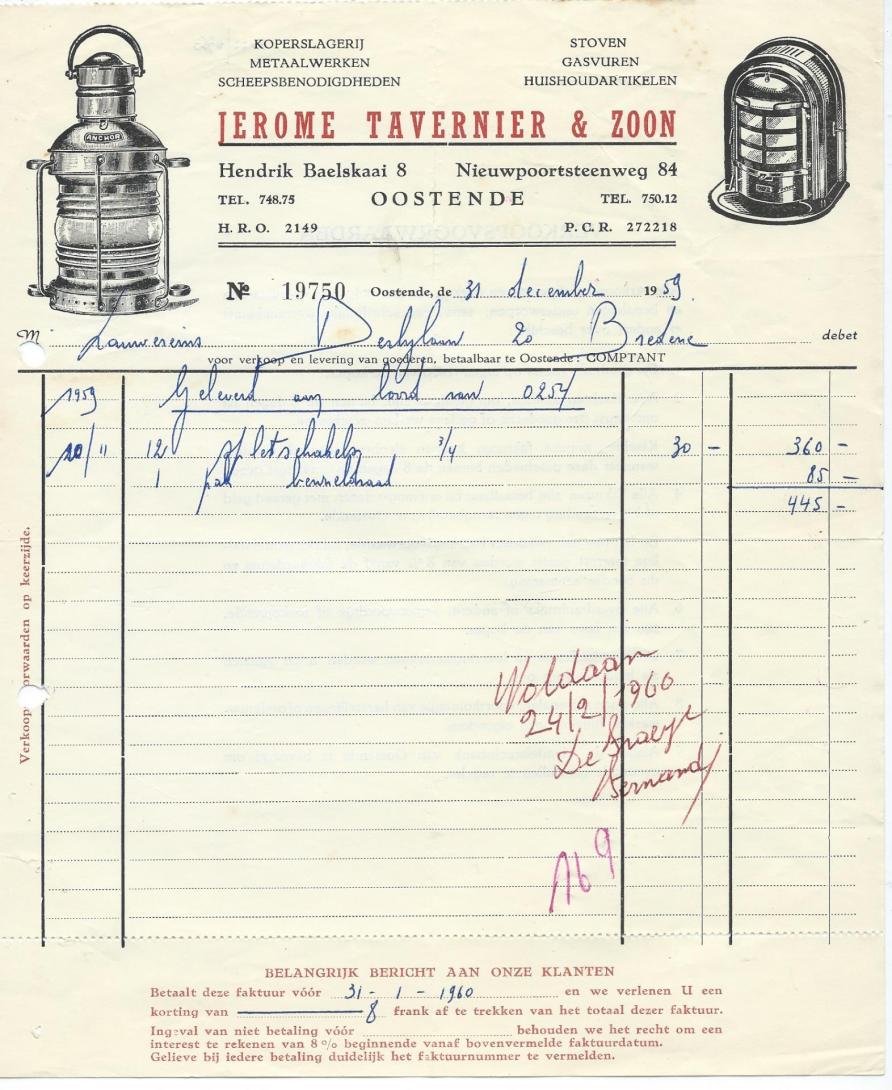 KOPERSLAGERIJ
METAALWERKEN
SCHEEPSBENODIGDHEDEN
STOVEN
GASVUREN
HUISHOUDARTIKELEN
ANCHOR
JEROME TAVERNIER & ZOON
Hendrik Baelskaai 8 Nieuwpoortsteenweg 84
TEL. 748.75 OOSTENDE TEL. 750.12
H.R.O. 2149 P.C.R. 272218
No 19750 Oostende, de 31 december 1959.
M Lauwereins 20 Bredene debet
voor verkoop en levering van goederen, betaalbaar te Oostende: COMPTANT
1959 Geleverd aan boord van 0254
20/11 12 spletschakels 3/4 30 - 360 -
1 pak benneldraad 85 -
445 -
Verkoopvoorwaarden op keerzijde.
Woldaan
24/2/1960
De
Fernand
169
BELANGRIJK BERICHT AAN ONZE KLANTEN
Betaalt deze faktuur vóór 31 - 1 - 1960 en we verlenen U een
korting van 8 frank af te trekken van het totaal dezer faktuur.
Ingeval van niet betaling vóór behouden we het recht om een
interest te rekenen van 8 % beginnende vanaf bovenvermelde faktuurdatum.
Gelieve bij iedere betaling duidelijk het faktuurnummer te vermelden.